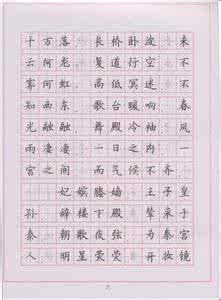 千万落。长桥卧波,未
云何龙?复道行空,不
霁何虹?高低冥迷,不
知西东。歌台暖响,春
光融融。舞殿冷袖,风
雨凄凄。一日之内,一
宫之间,而气候不齐。
妃嫔媵嫱,王子皇
孙,辞楼下殿,辇来于
秦,朝歌夜弦,为秦宫
人。明星荧荧,开妆镜